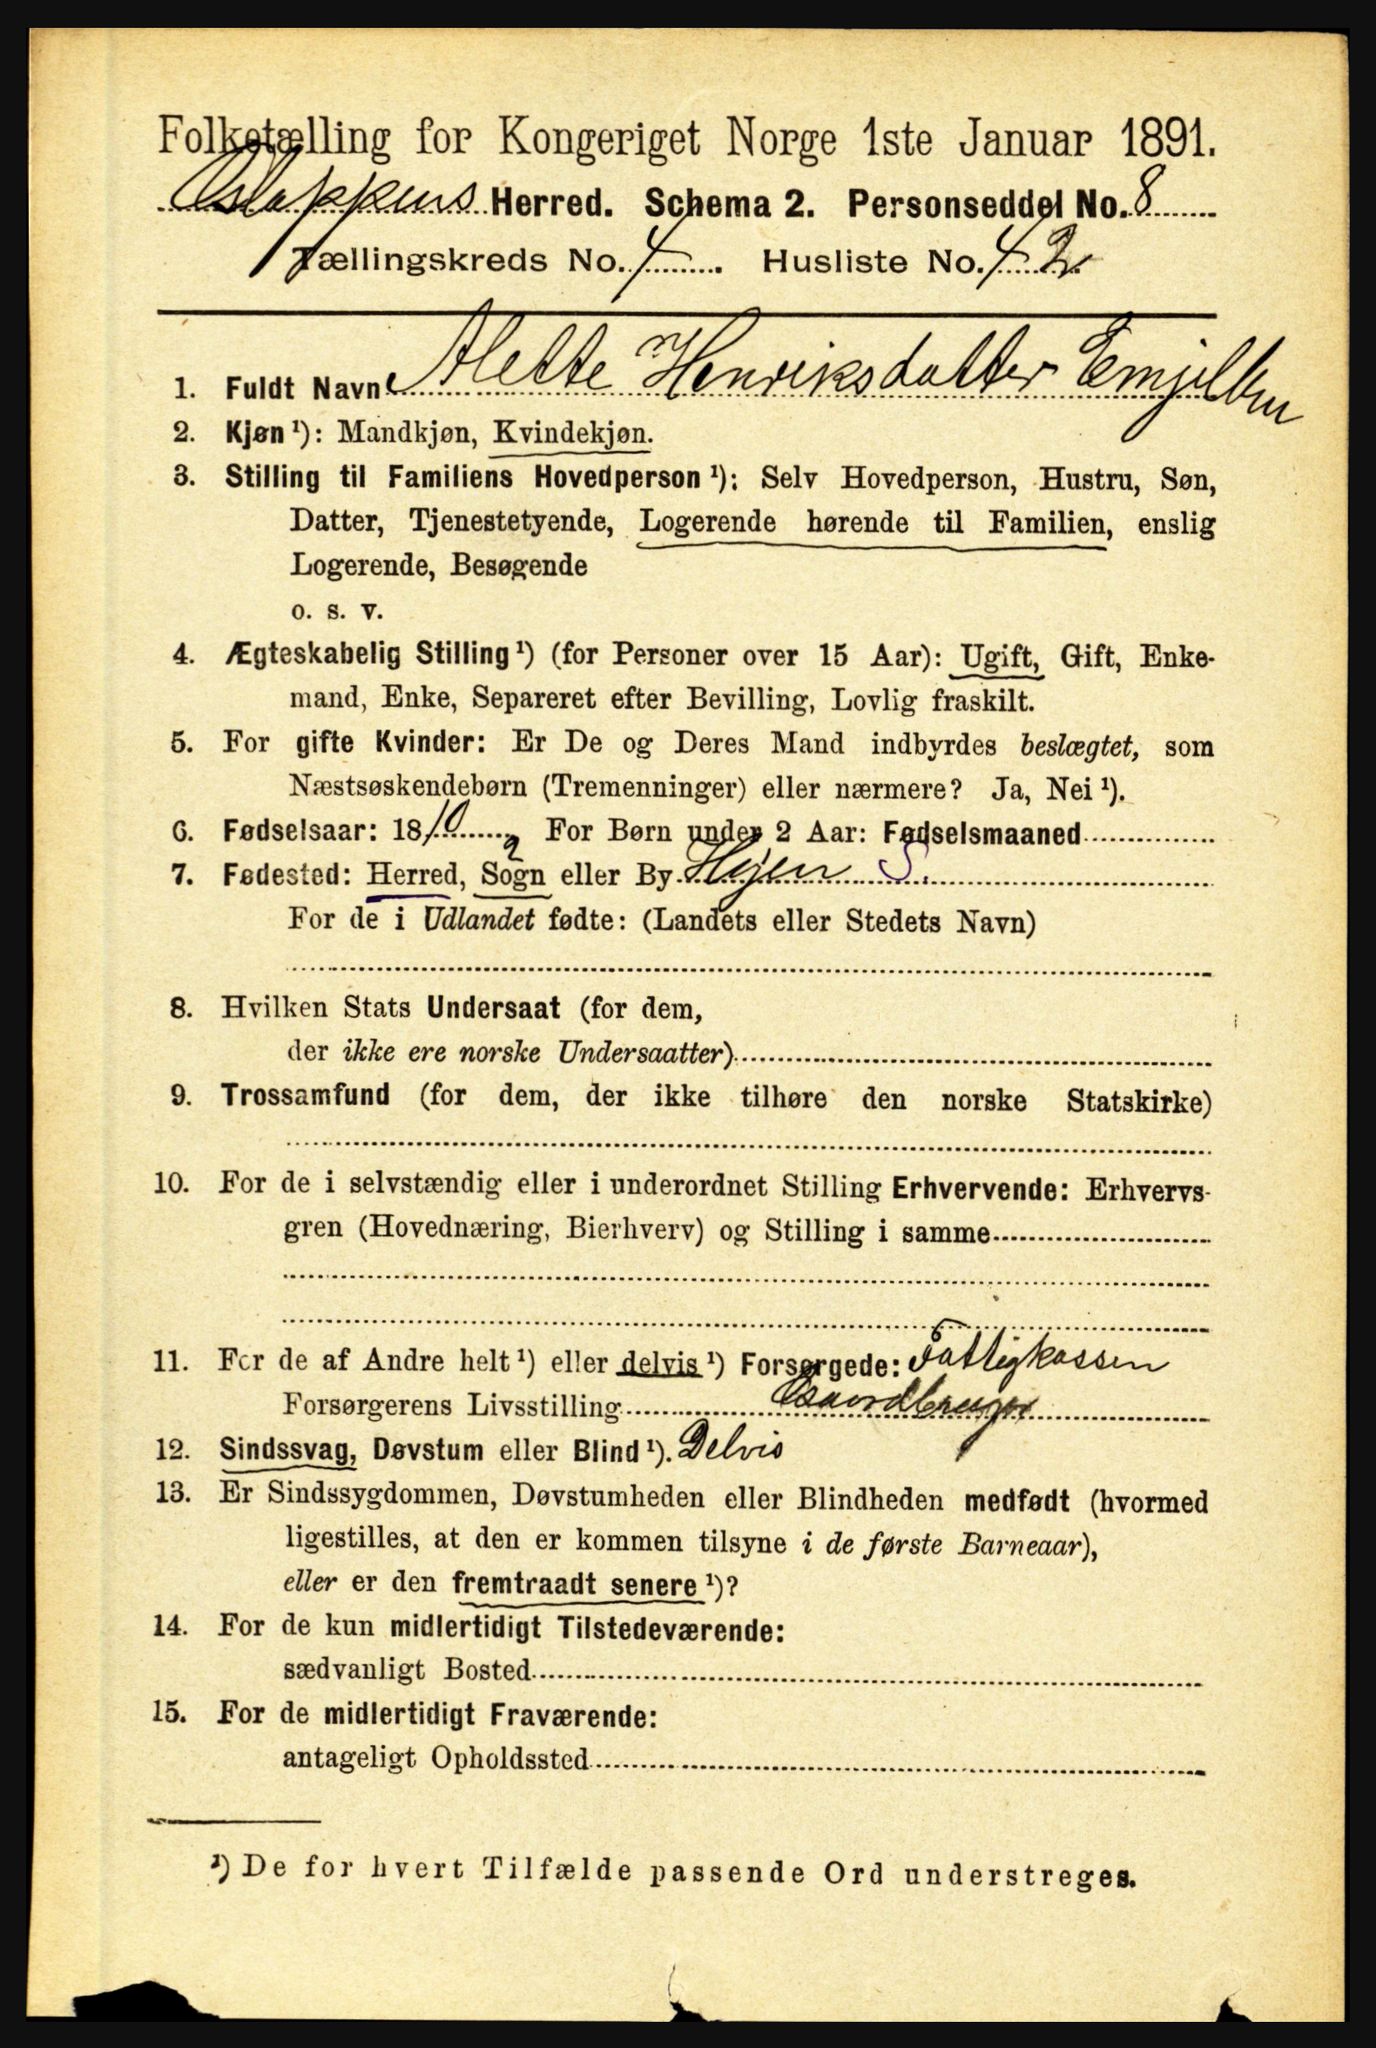 Folketælling for Kongeriget Norge 1ste Januar 1891.
Gloppens Herred. Schema 2. Personseddel No. 8
Tællingskreds No. 4. Husliste No. 42
1. Fuldt Navn Alette Henriksdatter Emjellen
2. Kjøn ¹): Mandkjøn, Kvindekjøn.
3. Stilling til Familiens Hovedperson ¹): Selv Hovedperson, Hustru, Søn,
Datter, Tjenestetyende, Logerende hørende til Familien, enslig
Logerende, Besøgende
o. s. v.
4. Ægteskabelig Stilling ¹) (for Personer over 15 Aar): Ugift, Gift, Enke-
mand, Enke, Separeret efter Bevilling, Lovlig fraskilt.
5. For gifte Kvinder: Er De og Deres Mand indbyrdes beslægtet, som
Næstsøskendebørn (Tremenninger) eller nærmere? Ja, Nei ¹).
6. Fødselsaar: 1810 For Børn under 2 Aar: Fødselsmaaned
7. Fødested: Herred, Sogn eller By Hyen S.
For de i Udlandet fødte: (Landets eller Stedets Navn)
8. Hvilken Stats Undersaat (for dem,
der ikke ere norske Undersaatter)
9. Trossamfund (for dem, der ikke tilhøre den norske Statskirke)
10. For de i selvstændig eller i underordnet Stilling Erhvervende: Erhvervs-
gren (Hovednæring, Bierhverv) og Stilling i samme
11. For de af Andre helt ¹) eller delvis ¹) Forsørgede: Fattigkassen
Forsørgerens Livsstilling Gaardbruger
12. Sindssvag, Døvstum eller Blind ¹). Delvis
13. Er Sindssygdommen, Døvstumheden eller Blindheden medfødt (hvormed
ligestilles, at den er kommen tilsyne i de første Barneaar),
eller er den fremtraadt senere ¹)?
14. For de kun midlertidigt Tilstedeværende:
sædvanligt Bosted
15. For de midlertidigt Fraværende:
antageligt Opholdssted
¹) De for hvert Tilfælde passende Ord understreges.